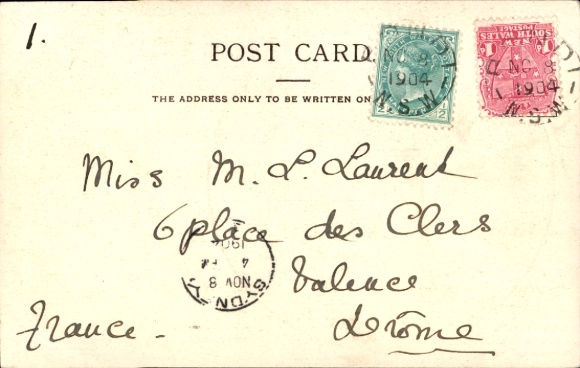 1.
POST CARD
THE ADDRESS ONLY TO BE WRITTEN ON
NEW
SOUTH WALES
POSTAGE
1d
1/2
NO 8
1904
N.S.W
8
1904
N.S.W
Miss M. L. Laurent
6 place des Clers
Valence
Drôme
France.
SYDNEY
NOV 8
4 PM